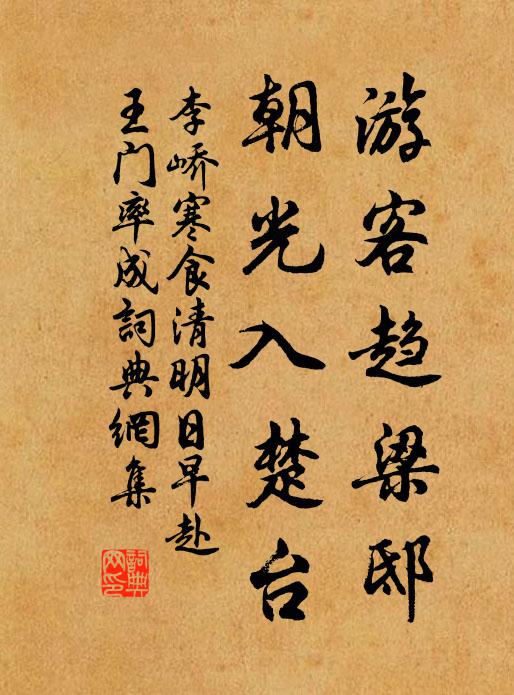 游客趋梁邸
朝光入楚台
李峤寒食清明日早赴
王门率成詞典網集
詞典网印